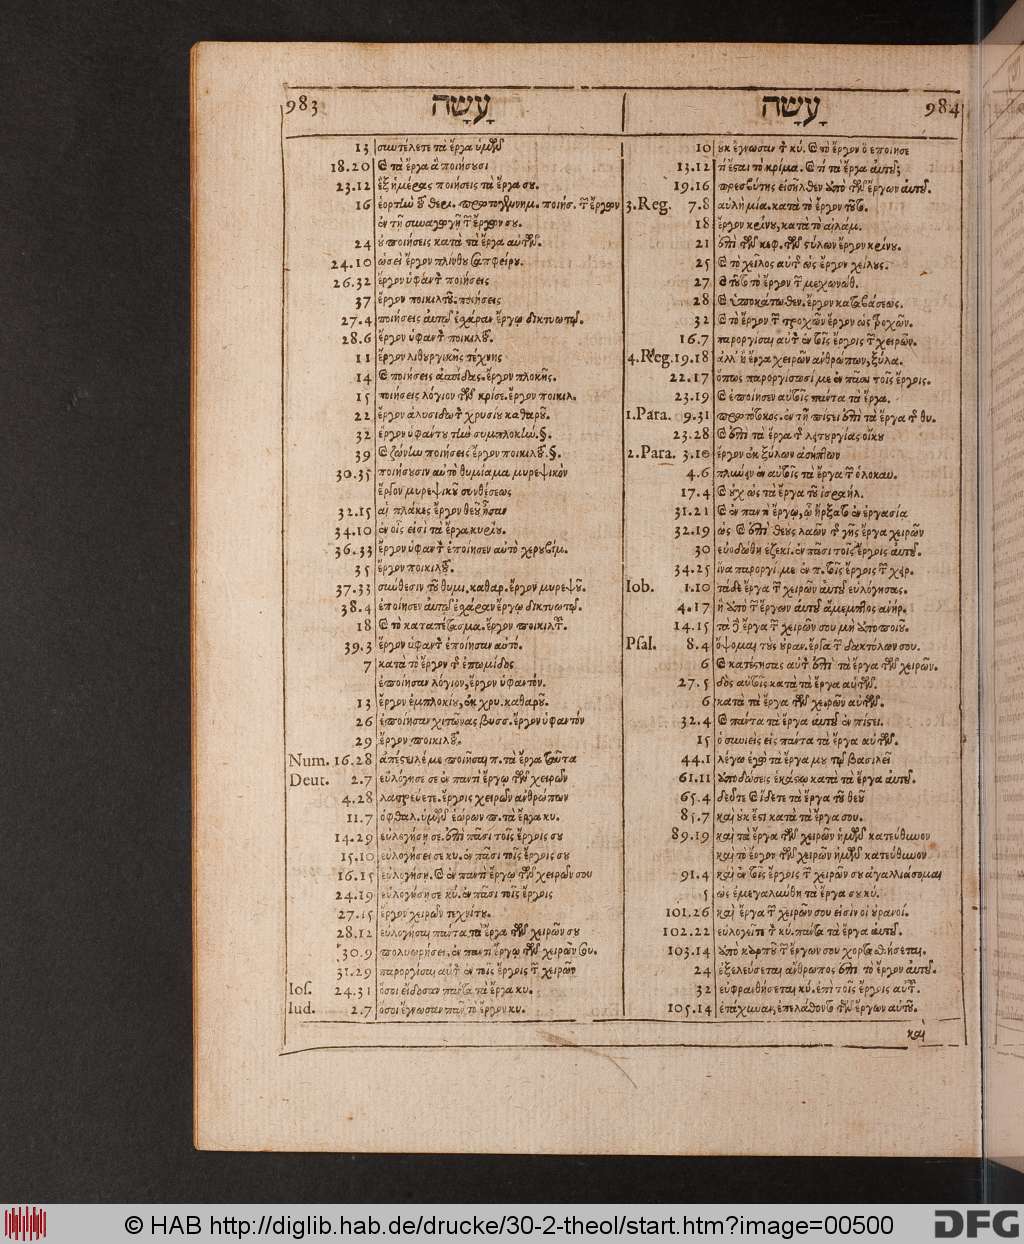 983 עָשָׂה
13 συντέλετε τὰ ἔργα ὑμῶν
18.20 καὶ τὰ ἔργα ἃ ποιήσουσι
23.12 ἓξ ἡμέρας ποιήσεις τὰ ἔργα σου.
16 ποιήσ. τῶν ἔργων
ἐν τῇ συναγωγῇ τῶν ἔργων σου.
24 οὐ ποιήσεις κατὰ τὰ ἔργα αὐτῶν.
24.10 ὡσεὶ ἔργον πλίνθου σαπφείρου.
26.32 ἔργον ὑφάντου ποιήσεις
37 ἔργον ποικιλτοῦ. ποιήσεις
27.4 ποιήσεις αὐτῷ ἐσχάραν ἔργῳ δικτυωτῷ.
28.6 ἔργον ὑφάντου ποικιλτοῦ.
11 ἔργον λιθουργικῆς τέχνης
14 καὶ ποιήσεις ἀσπίδας. ἔργον πλοκῆς.
15 ποιήσεις λόγιον τῶν κρίσε. ἔργον ποικιλ.
22 ἔργον ἁλυσιδωτοῦ χρυσίου καθαροῦ.
32 ἔργον ὑφάντου τὴν συμπλοκὴν. §.
39 καὶ ζώνην ποιήσεις ἔργον ποικιλτοῦ. §.
30.35 ποιήσουσιν αὐτὸ θυμίαμα μυρεψικὸν
ἔργον μυρεψικοῦ συνθέσεως
32.15 αἱ πλάκες ἔργον θεοῦ ἦσαν
34.10 ἐν οἷς εἶσι τὰ ἔργα κυρίου.
36.33 ἔργον ὑφάντου ἐποίησεν αὐτὸ χερουβίμ.
35 ἔργον ποικιλτοῦ.
37.33 σύνθεσιν τοῦ θυμι. καθαρ. ἔργον μυρεψοῦ.
38.4 ἐποίησεν αὐτῷ ἐσχάραν ἔργῳ δικτυωτῷ.
18 καὶ τὸ καταπέτασμα. ἔργον ποικιλτοῦ.
39.3 ἔργον ὑφάντου ἐποίησαν αὐτό.
7 κατὰ τὸ ἔργον τοῦ ἐπωμίδος
ἐποίησαν λόγιον, ἔργον ὑφαντόν.
13 ἔργον ἐμπλοκίου, ἐκ χρυ. καθαροῦ.
26 ἐποίησαν χιτῶνας βυσσ. ἔργον ὑφαντόν
29 ἔργον ποικιλτοῦ.
Num. 16.28 ἀπέστειλέ με ποιῆσαι π. τὰ ἔργα ταῦτα
Deut. 2.7 εὐλόγησέ σε ἐν παντὶ ἔργῳ τῶν χειρῶν
4.28 λατρεύετε. ἔργοις χειρῶν ἀνθρώπων
11.7 ὀφθαλ. ὑμῶν ἑώρων π. τὰ ἔργα κυ.
14.29 εὐλογήσῃ σε. ἐπὶ πᾶσι τοῖς ἔργοις σου
15.10 εὐλογήσει σε κυ. ἐν πᾶσι τοῖς ἔργοις σου
16.15 εὐλογήσῃ. καὶ ἐν παντὶ ἔργῳ τῶν χειρῶν σου
24.19 εὐλογήσῃ σε κύ. ἐν πᾶσι τοῖς ἔργοις
27.15 ἔργον χειρῶν τεχνίτου.
28.12 εὐλογῆσαι πάντα τὰ ἔργα τῶν χειρῶν σου
30.9 πολυωρήσει. ἐν παντὶ ἔργῳ τῶν χειρῶν σου.
31.29 παροργίσαι αὐτὸν ἐν τοῖς ἔργοις τῶν χειρῶν
Ios. 24.31 ὅσοι εἴδοσαν πάντα τὰ ἔργα κυ.
Iud. 2.7 ὅσοι ἔγνωσαν πᾶν τὸ ἔργον κυ.
עָשָׂה 984
10 οὐκ ἔγνωσαν τὸν κύ. καὶ τὸ ἔργον ὃ ἐποίησε
13.12 τί ἔσται τὸ κρίμα. καὶ τί τὰ ἔργα αὐτοῦ;
19.16 πρεσβύτης εἰσῆλθεν ἀπὸ τῶν ἔργων αὐτοῦ.
3.Reg. 7.8 αὐλὴ μία. κατὰ τὸ ἔργον τοῦτο.
18 ἔργον κρίνου, κατὰ τὸ αἰλάμ.
21 ἐπὶ τῶν κεφ. τῶν στύλων ἔργον κρίνου.
25 καὶ τὸ χεῖλος αὐτοῦ ὡς ἔργον χείλους.
27 καὶ τοῦτο τὸ ἔργον τῶν μεχωνώθ.
28 καὶ ὑποκάτωθεν. ἔργον καταβάσεως.
32 καὶ τὸ ἔργον τῶν τροχῶν ἔργον ὡς τροχῶν.
16.7 παροργίσαι αὐτὸν ἐν τοῖς ἔργοις τῶν χειρῶν.
4.Reg. 19.18 ἀλλ' ἢ ἔργα χειρῶν ἀνθρώπων, ξύλα.
22.17 ὅπως παροργίσωσί με ἐν πᾶσι τοῖς ἔργοις.
23.19 καὶ ἐποίησεν αὐτοῖς πάντα τὰ ἔργα.
1.Para. 9.31 πρωτότοκος. ἐν τῇ πίστει ἐπὶ τὰ ἔργα τοῦ θυ.
23.28 καὶ ἐπὶ τὰ ἔργα τῆς λειτουργίας οἴκου
2.Para. 3.10 ἔργον ἐκ ξύλων
4.6 πλύνειν ἐν αὐτοῖς τὰ ἔργα τῶν ὁλοκαυ.
17.4 καὶ οὐχ ὡς τὰ ἔργα τοῦ ἰσραήλ.
31.21 καὶ ἐν παντὶ ἔργῳ, ᾧ ἤρξατο ἐν ἐργασίᾳ
32.19 ὡς καὶ ἐπὶ θεοὺς λαῶν τῆς γῆς ἔργα χειρῶν
30 εὐοδώθη ἐζεκί. ἐν πᾶσι τοῖς ἔργοις αὐτοῦ.
34.25 ἵνα παροργί. με ἐν π. τοῖς ἔργοις τῶν χειρ.
Iob. 1.10 τάδε ἔργα τῶν χειρῶν αὐτοῦ εὐλόγησας.
4.17 ἢ ἀπὸ τῶν ἔργων αὐτοῦ ἄμεμπτος ἀνήρ.
14.15 τὰ δὲ ἔργα τῶν χειρῶν σου μὴ ἀποποιοῦ.
Psal. 8.4 ὄψομαι τοὺς οὐραν. ἔργα τῶν δακτύλων σου.
6 καὶ κατέστησας αὐτὸν ἐπὶ τὰ ἔργα τῶν χειρῶν.
27.5 δὸς αὐτοῖς κατὰ τὰ ἔργα αὐτῶν.
6 κατὰ τὰ ἔργα τῶν χειρῶν αὐτῶν.
32.4 καὶ πάντα τὰ ἔργα αὐτοῦ ἐν πίστει.
15 ὁ συνιεὶς εἰς πάντα τὰ ἔργα αὐτῶν.
44.1 λέγω ἐγὼ τὰ ἔργα μου τῷ βασιλεῖ
61.11 ἀποδώσεις ἑκάστῳ κατὰ τὰ ἔργα αὐτοῦ.
65.4 δεῦτε καὶ ἴδετε τὰ ἔργα τοῦ θεοῦ
85.7 καὶ οὐκ ἔστι κατὰ τὰ ἔργα σου.
89.19 καὶ τὰ ἔργα τῶν χειρῶν ἡμῶν κατεύθυνον
καὶ τὸ ἔργον τῶν χειρῶν ἡμῶν κατεύθυνον
91.4 καὶ ἐν τοῖς ἔργοις τῶν χειρῶν σου ἀγαλλιάσομαι
5 ὡς ἐμεγαλύνθη τὰ ἔργα σου κύ.
101.26 καὶ ἔργα τῶν χειρῶν σου εἰσὶν οἱ οὐρανοί.
102.22 εὐλογεῖτε τὸν κύ. πάντα τὰ ἔργα αὐτοῦ.
103.14 ἀπὸ καρποῦ τῶν ἔργων σου χορτασθήσεται.
24 ἐξελεύσεται ἄνθρωπος ἐπὶ τὸ ἔργον αὐτοῦ.
32 εὐφρανθήσεται κύ. ἐπὶ τοῖς ἔργοις αὐτοῦ.
105.14 ἐτάχυναν, ἐπελάθοντο τῶν ἔργων αὐτοῦ.
καὶ
© HAB http://diglib.hab.de/drucke/30-2-theol/start.htm?image=00500
DFG